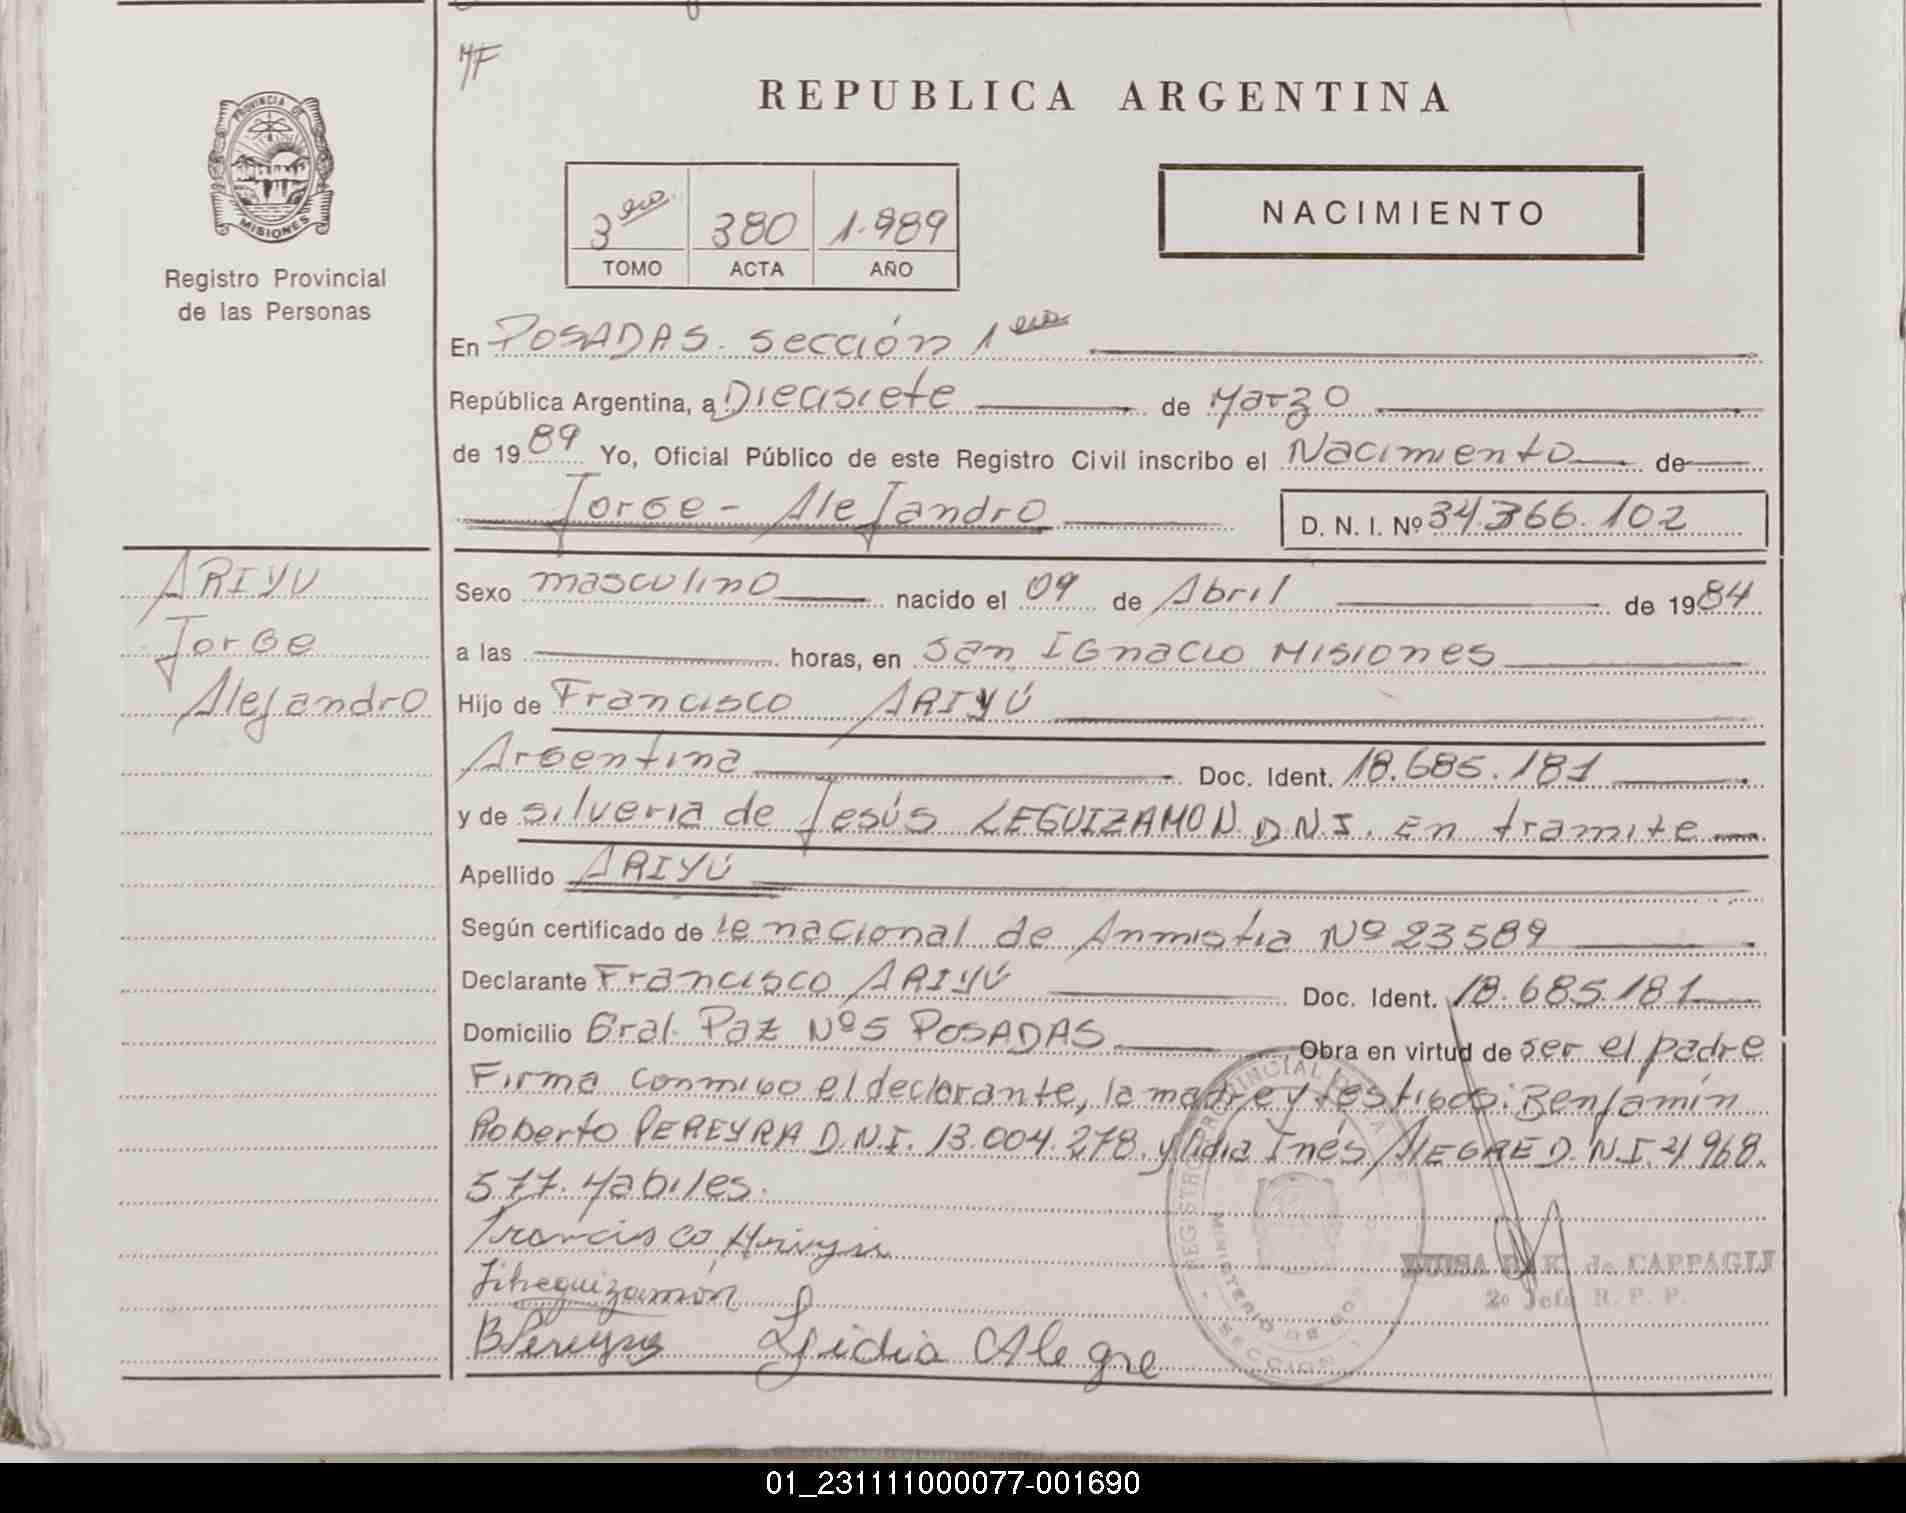 MF
REPUBLICA ARGENTINA
PROVINCIA DE
MISIONES
Registro Provincial
de las Personas
3ero 380 1.989
TOMO ACTA AÑO
NACIMIENTO
En POSADAS. sección 1era
República Argentina, a Diecisiete de Marzo
de 1989 Yo, Oficial Público de este Registro Civil inscribo el Nacimiento de
Jorge - Alejandro D. N. I. Nº 34.366.102
ARIYU
Jorge
Alejandro
Sexo masculino nacido el 09 de Abril de 1984
a las horas, en San Ignacio Misiones
Hijo de Francisco ARIYÚ
Argentina Doc. Ident. 18.685.181
y de silveria de Jesús LEGUIZAMON D.N.I. En tramite
Apellido ARIYÚ
Según certificado de le nacional de Anmistia Nº 23589
Declarante Francisco ARIYÚ Doc. Ident. 18.685.181
Domicilio Gral. Paz Nº 5 POSADAS Obra en virtud de ser el padre
Firma conmigo el declarante, la madre y testigos: Benjamín
Roberto PEREYRA D.N.I. 13.004.278. y lidia Inés ALEGRE D.N.I. 21.968.
577. Habiles.
Francisco
B Pereyra Lidia Alegre
REGISTRO PROVINCIAL DE LAS
MINISTERIO DE GOB
SECCION 1
LUISA de CAPPAGLI
2º Jefe R. P. P.
01_231111000077-001690